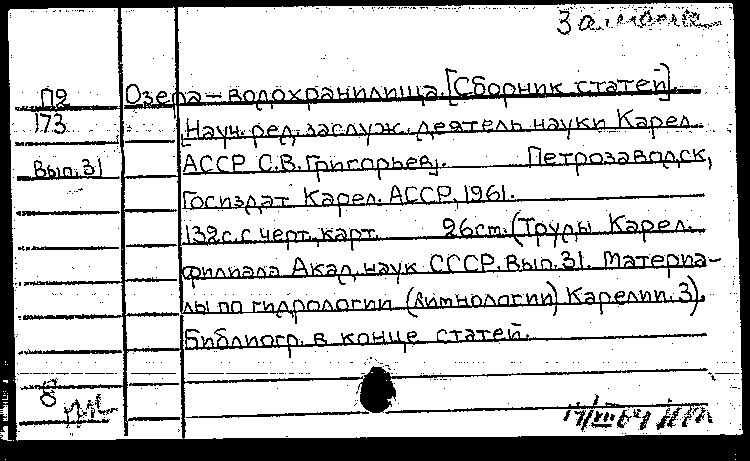 П2 Озера-водохранилища. [Сборник статей].
173 [Науч. ред. заслуж. деятель науки Карел.
Вып. 31 АССР С.В. Григорьев]. Петрозаводск,
Госиздат Карел. АССР, 1961.
132с. с черт., карт. 26см. (Труды Карел.
филиала Акад. наук СССР. Вып. 31. Материа-
лы по гидрологии (лимнологии) Карелии. 3).
Библиогр. в конце статей.
8
17/VII 64